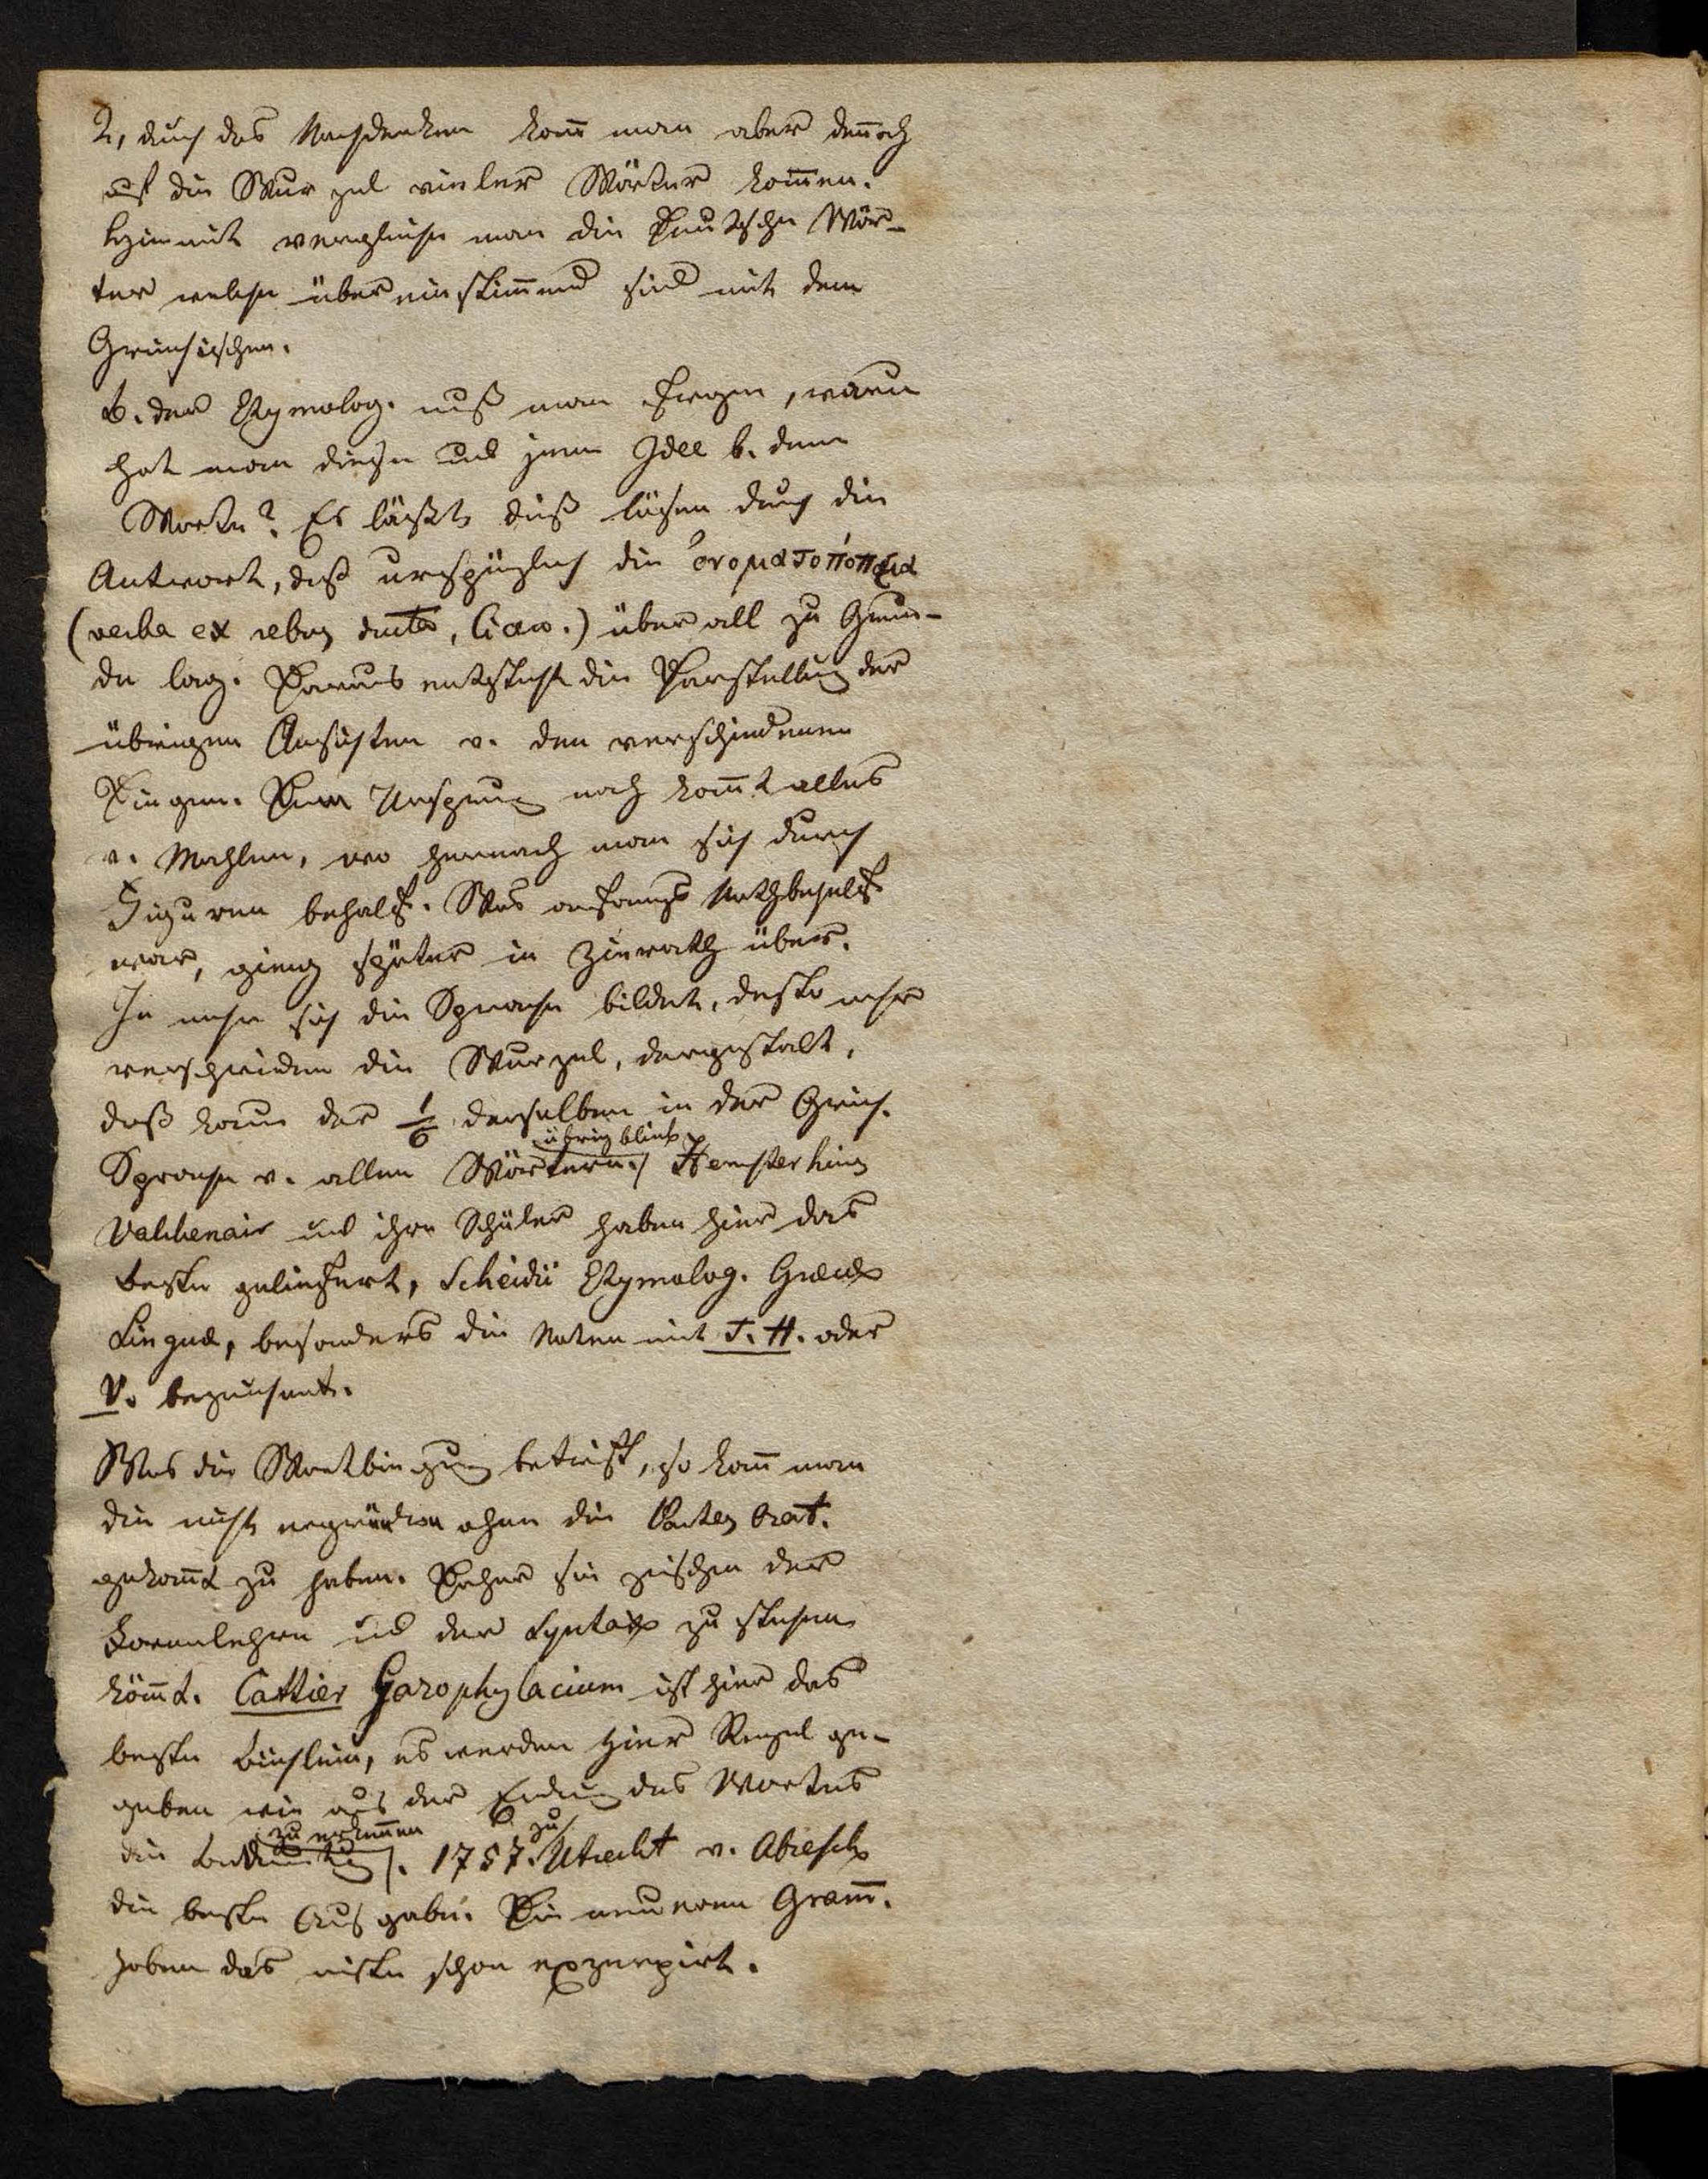 2, durch das Nachdenken kan̄ man aber den̄och
auf die Wurzel vieler Wörter kom̄en.
Hiemit vergleiche man die Deutschen Wör-
ter welche übereinstim̄end sind mit dem
Griechischen.
b. der Etymolog. muß man fragen, warum
hat man diese und jene Idee b. dem
Worte? Es läßt dieß lösen durch die
Antwort, daß ursprünglich die ὀνοματοπόπεια
(verba ex rebus ducta, Cicero.) überall zu Grun-
de lag. Daraus entsteht die Darstellung der
übrigen Ansichten v. den verschiedenen
Dingen. Dem Ursprung nach kom̄t alles
v. Mahlen, wo hernach man sich durch
Figuren behalf. Was anfangs Nothbehelf
war, gieng später in Zierrath über.
Je mehr sich die Sprache bildet, desto mehr
verschwinden die Wurzel, dergestalt,
daß kaum der 1/6 derselben in der Griech.
Sprache v. allen Wörtern. übrig bleibt Hemsterhius
Valckenair und ihre Schüler haben hier das
beste geliefert, Scheidii Etymolog. Graecae
Linguae, besonders die Noten mit T. H. oder
V. bezeichnet.
Was die Wortbiegung betrifft, so kan̄ man
die nicht ergründen ohne die Partes Orat.
gekan̄t zu haben. Daher sie zwischen der
Formenlehre und der Syntax zu stehen
köm̄t. Cattier Gazophylacium ist hier das
beste Büchlein, es werden hier Regel ge-
geben wie aus der Endung des Wortes
die Bedeutung zu erkennen. 1757. zu Utrecht v. Abresch
die beste Ausgabe. Die neueren Gram̄.
haben das meiste schon exzerpirt.